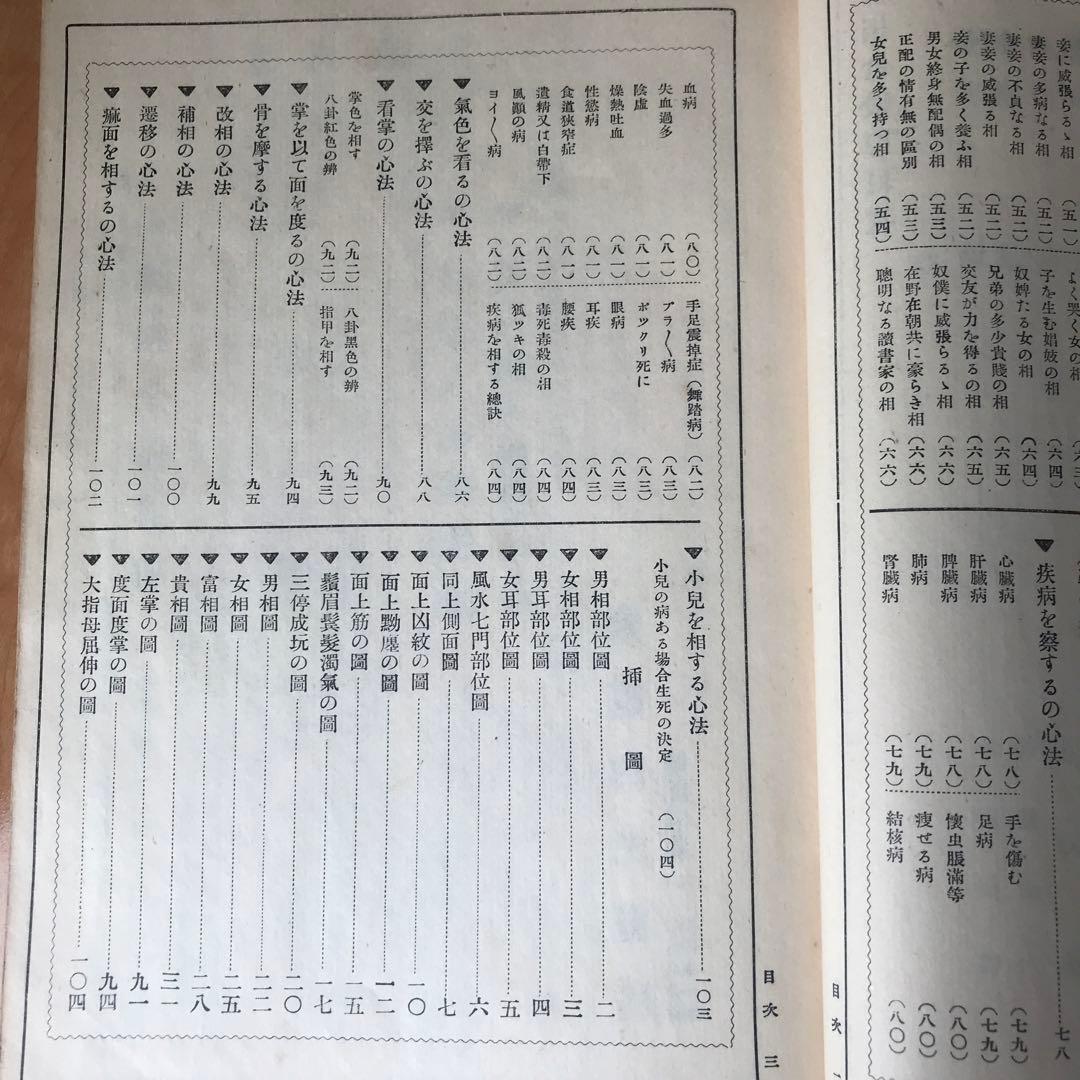 妾に威張らるゝ相(五一)
妻妾の多病なる相(五二)
妻妾の不貞なる相(五二)
妻妾の威張る相(五二)
妾の子を多く養ふ相(五二)
男女終身無配偶の相(五三)
正配の情有無の區別(五三)
女兒を多く持つ相(五四)
よく哭く女の相(六三)
子を生む娼妓の相(六四)
奴婢たる女の相(六四)
兄弟の多少貴賤の相(六五)
交友が力を得るの相(六五)
奴僕に威張らるゝ相(六六)
在野在朝共に豪らき相(六六)
聰明なる讀書家の相(六六)
疾病を察するの心法 七八
心臟病(七八)
肝臟病(七八)
脾臟病(七八)
肺病(七九)
腎臟病(七九)
手を傷む(七九)
足病(七九)
懷虫脹滿等(八〇)
瘦せる病(八〇)
結核病(八〇)
目次
血病(八〇)
失血過多(八一)
陰虛(八一)
燥熱吐血(八一)
性慾病(八一)
食道狹窄症(八一)
遺精又は白帶下(八二)
風顚の病(八二)
ヨイ〱病(八二)
手足震掉症(舞踏病)(八二)
ブラ〱病(八三)
ポツクリ死に(八三)
眼病(八三)
耳疾(八三)
腰疾(八四)
毒死毒殺の相(八四)
狐ツキの相(八四)
疾病を相する總訣(八四)
氣色を看るの心法 八六
交を擇ぶの心法 八八
看掌の心法 九〇
掌色を相す(九二)
八卦紅色の辨(九二)
八卦黑色の辨(九二)
指甲を相す(九三)
掌を以て面を度るの心法 九四
骨を摩する心法 九五
改相の心法 九九
補相の心法 一〇〇
遷移の心法 一〇一
痲面を相するの心法 一〇二
小兒を相する心法 一〇三
小兒の病ある場合生死の決定(一〇四)
揷圖
男相部位圖 二
女相部位圖 三
男耳部位圖 四
女耳部位圖 五
風水七門部位圖 六
同上側面圖 七
面上凶紋の圖 一〇
面上黝黶の圖 一二
面上筋の圖 一五
鬚眉鬂髮濁氣の圖 一七
三停成玩の圖 二〇
男相圖 二二
女相圖 二五
富相圖 二八
貴相圖 三一
左掌の圖 九一
度面度掌の圖 九四
大指母屈伸の圖 一〇四
目次 三